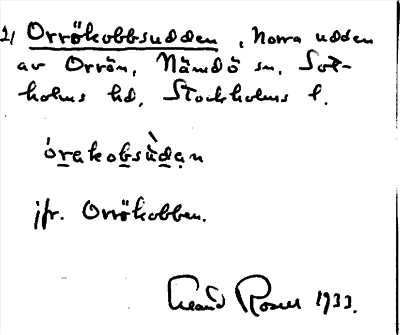 2) Orrökobbsudden, Norra udden
av Orrön, Nämdö sn, Sot-
holms hd, Stockholms l.
órakobsùdan
jfr. Orrökobben.
1933.